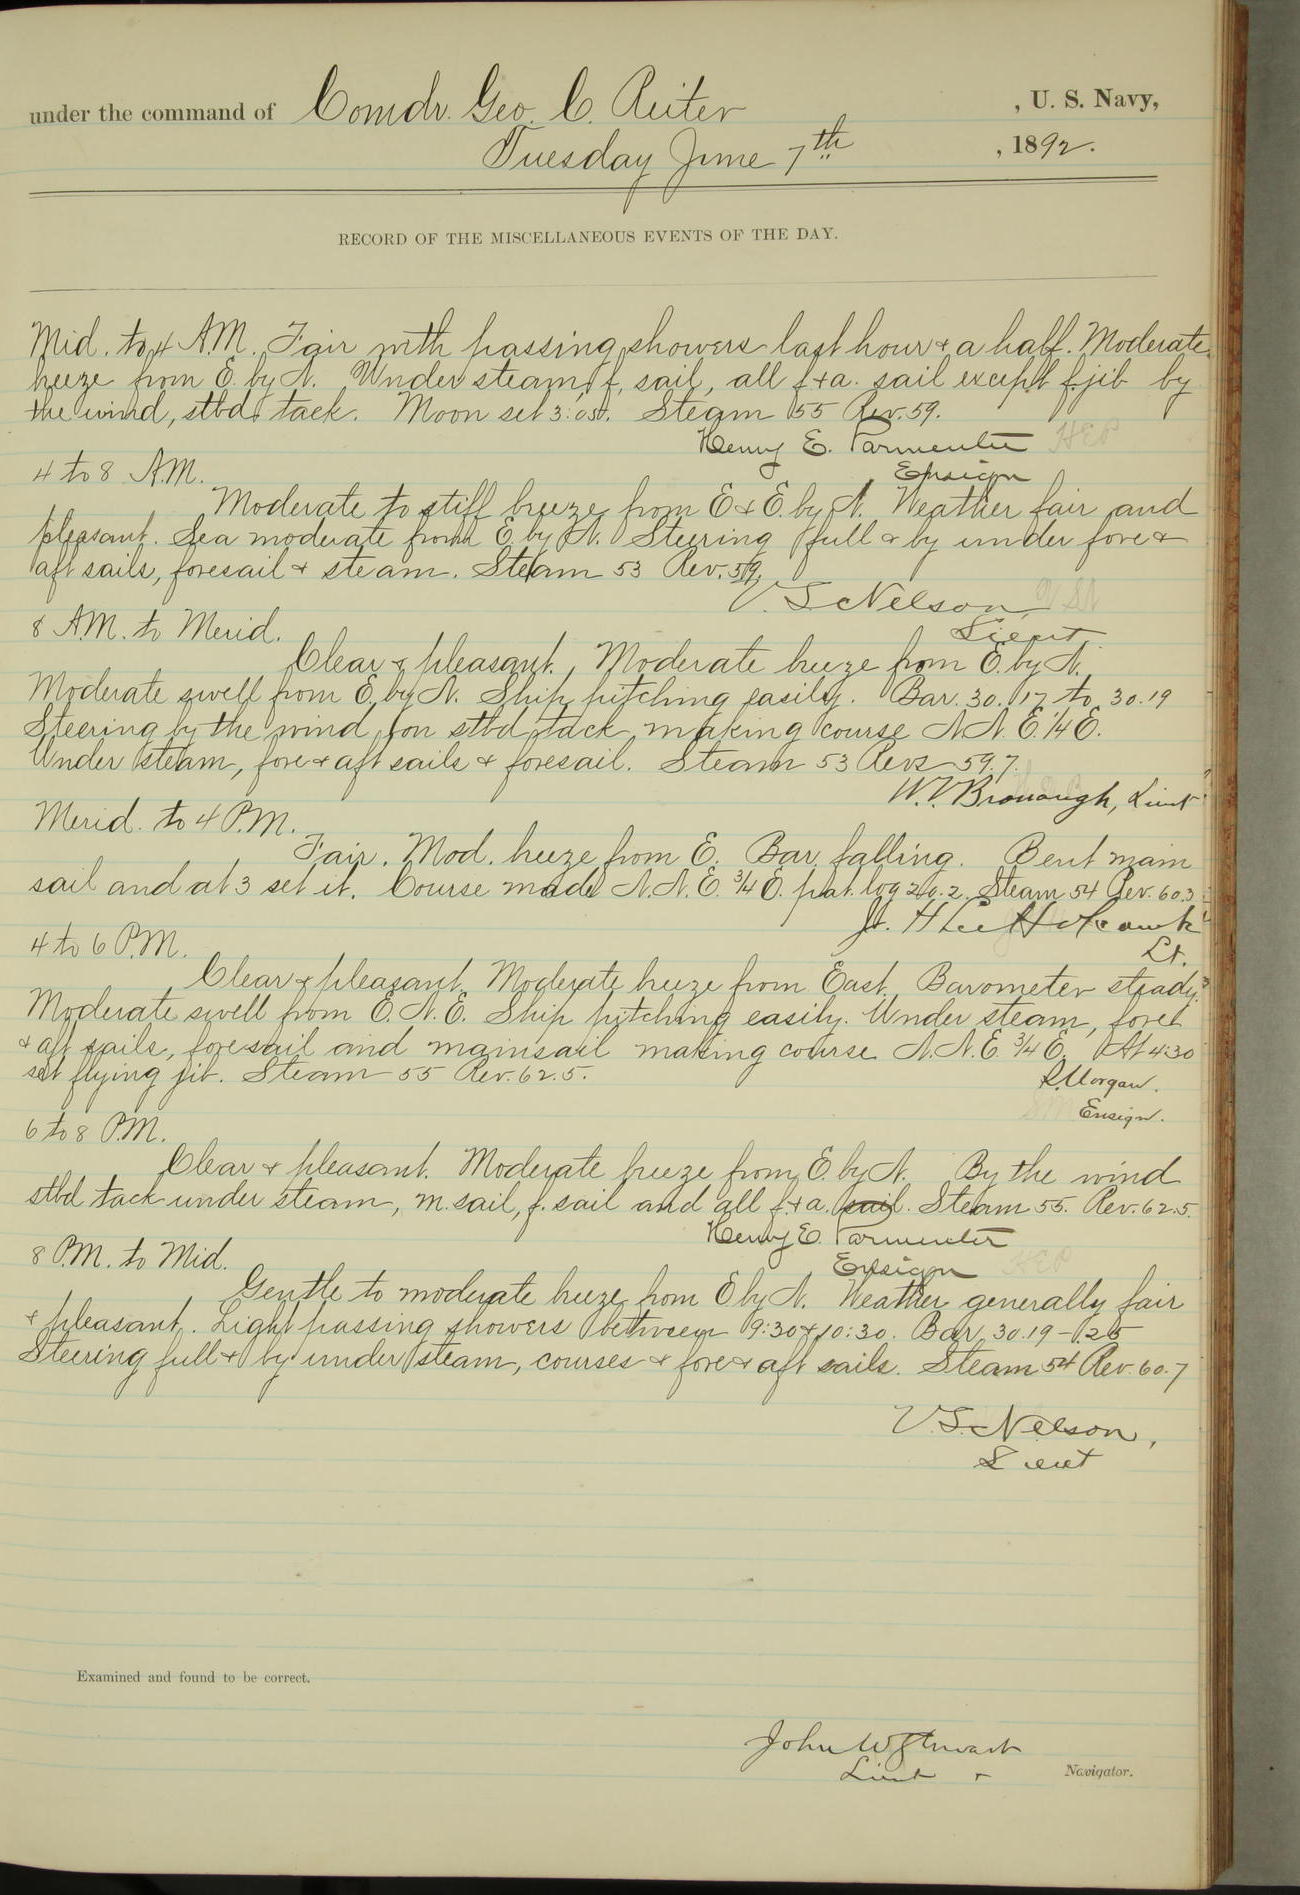 under the command of Comdr. Geo. C. Reiter , U. S. Navy,
Tuesday June 7th , 1892.
RECORD OF THE MISCELLANEOUS EVENTS OF THE DAY.
Mid. to 4 A.M. Fair with passing showers last hour & a half. Moderate
breeze from E. by N. Under steam, f. sail, all f & a. sail except f. jib by
the wind, stbd tack. Moon set 3:05. Steam 55 Rev. 59.
Henry E. Parmenter HEP
Ensign
4 to 8 A.M.
Moderate to stiff breeze from E & E. by N. Weather fair and
pleasant. Sea moderate from E. by N. Steering full & by under fore &
aft sails, foresail & steam. Steam 53 Rev. 59.
V. S. Nelson VSN
Lieut
8 A.M. to Merid.
Clear & pleasant. Moderate breeze from E. by N.
Moderate swell from E. by N. Ship pitching easily. Bar. 30.17 to 30.19
Steering by the wind on stbd tack making course N.N.E. 1/4 E.
Under steam, fore & aft sails & foresail. Steam 53 Revs 59.7.
W. V. Bronaugh, Lieut
Merid. to 4 P.M.
Fair. Mod. breeze from E. Bar. falling. Bent main
sail and at 3 set it. Course made N.N.E. 3/4 E. pat. log 20.2. Steam 54 Rev. 60.3
Jt. H Lee Holcomb
Lt.
4 to 6 P.M.
Clear & pleasant. Moderate breeze from East. Barometer steady.
Moderate swell from E.N.E. Ship pitching easily. Under steam, fore
& aft sails, foresail and mainsail making course N.N.E. 3/4 E. At 4:30
set flying jib. Steam 55 Rev. 62.5.
S. Morgan.
Ensign.
6 to 8 P.M.
Clear & pleasant. Moderate breeze from E. by N. By the wind
stbd tack under steam, m. sail, f. sail and all f. & a. sail. Steam 55. Rev. 62.5.
Henry E. Parmenter
Ensign HEP
8 P.M. to Mid.
Gentle to moderate breeze from E by N. Weather generally fair
& pleasant. Light passing showers between 9:30 & 10:30. Bar. 30.19 - .25
Steering full & by under steam, courses & fore & aft sails. Steam 54 Rev. 60.7
V. S. Nelson,
Lieut
Examined and found to be correct.
John W Stewart
Lieut & Navigator.